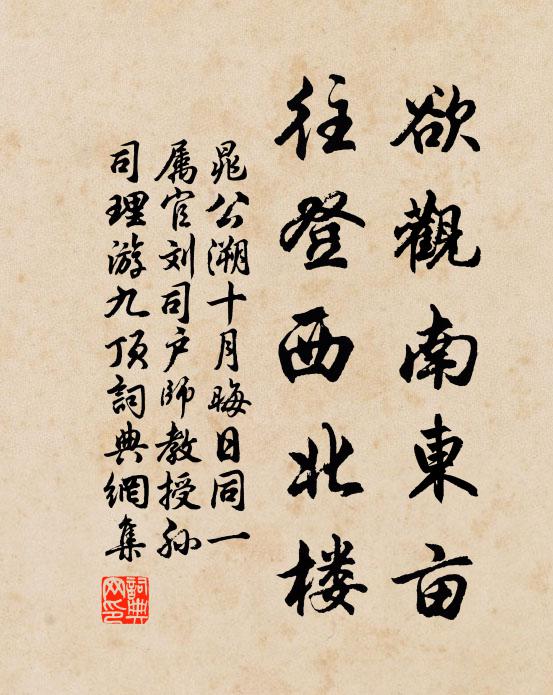 欲觀南東亩
往登西北楼
晁公溯十月晦日同一
属官刘司户師教授孙
司理游九顶詞典網集
詞典
网印